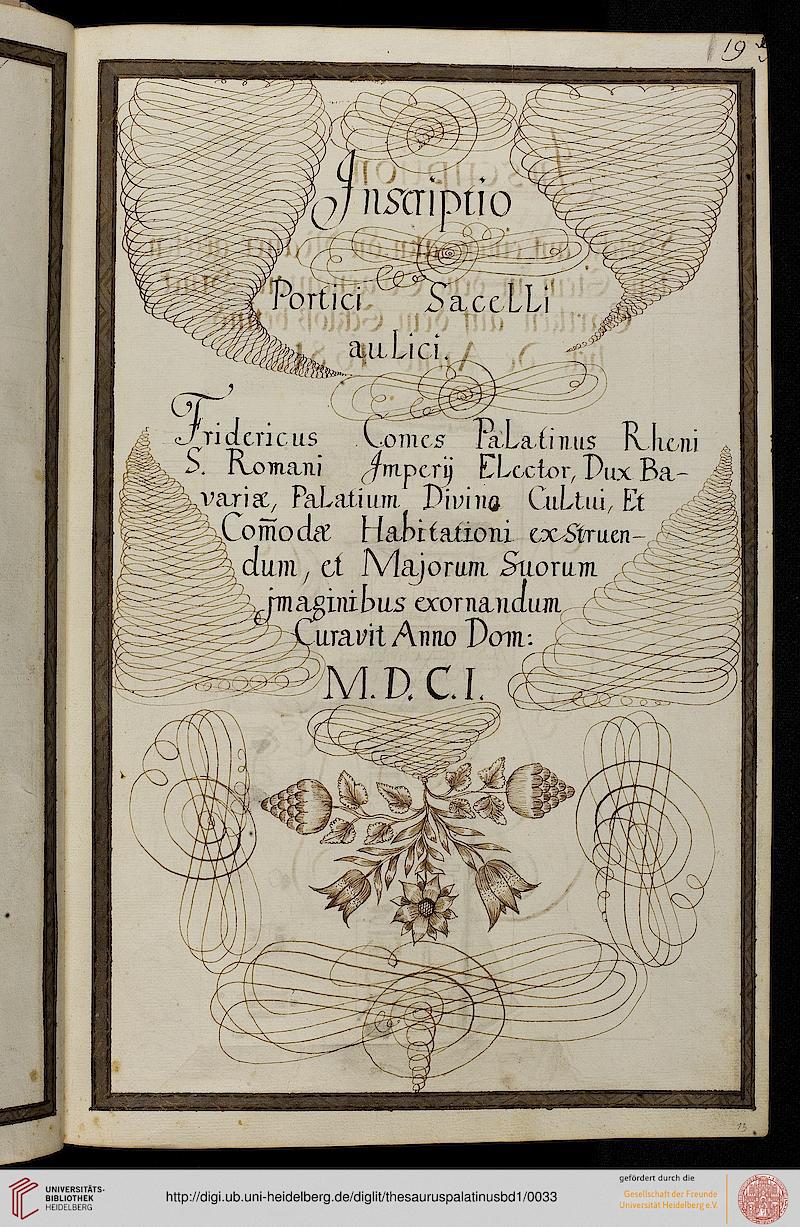 19
Inscriptio
Portici Sacelli
aulici.
Fridericus Comes Palatinus Rheni
S. Romani Imperij Elector, Dux Ba-
variæ, Palatium Divino Cultui, Et
Com̄odæ Habitationi exstruen-
dum, et Majorum Suorum
jmaginibus exornandum
Curavit Anno Dom:
M. D. C. I.
13
UNIVERSITÄTS-
BIBLIOTHEK
HEIDELBERG
http://digi.ub.uni-heidelberg.de/diglit/thesauruspalatinusbd1/0033
gefördert durch die
Gesellschaft der Freunde
Universität Heidelberg e.V.